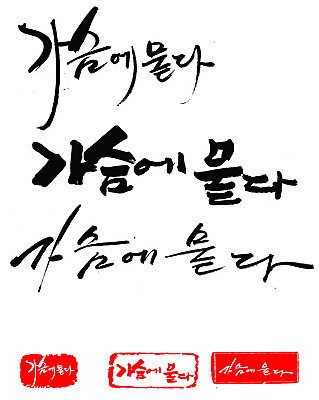 가슴에 묻다
가슴에 묻다
가슴에 묻다
가슴에 묻다
가슴에 묻다
가슴에 묻다